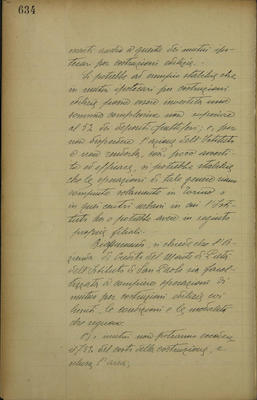 634
mente anche a quello dei mutui ipo-
tecari per costruzioni edilizie.
Si potrebbe ad esempio stabilire che
in mutui ipotecari per costruzioni
edilizie possa essere investita una
somma complessiva non superiore
al 5% dei depositi fruttiferi; e per
non disperdere l'azione dell'Istituto
e non renderla, con poco
ed efficace, si potrebbe stabilire
che le operazioni di tale genere siano
compiute solamente in Torino e
in quei centri urbani in cui l'Isti-
tuto ha o potrebbe avere in seguito
proprie filiali.
si chiede che l'A-
zienda di Credito del Monte di Pietà
dell'Istituto di San Paolo sia
a compiere operazioni di
mutuo per costruzioni edilizie coi
limiti, le condizioni e le modalità
che seguono:
a) i mutui non potranno eccedere
il 50% del costo della costruzione,
esclusa l'area;